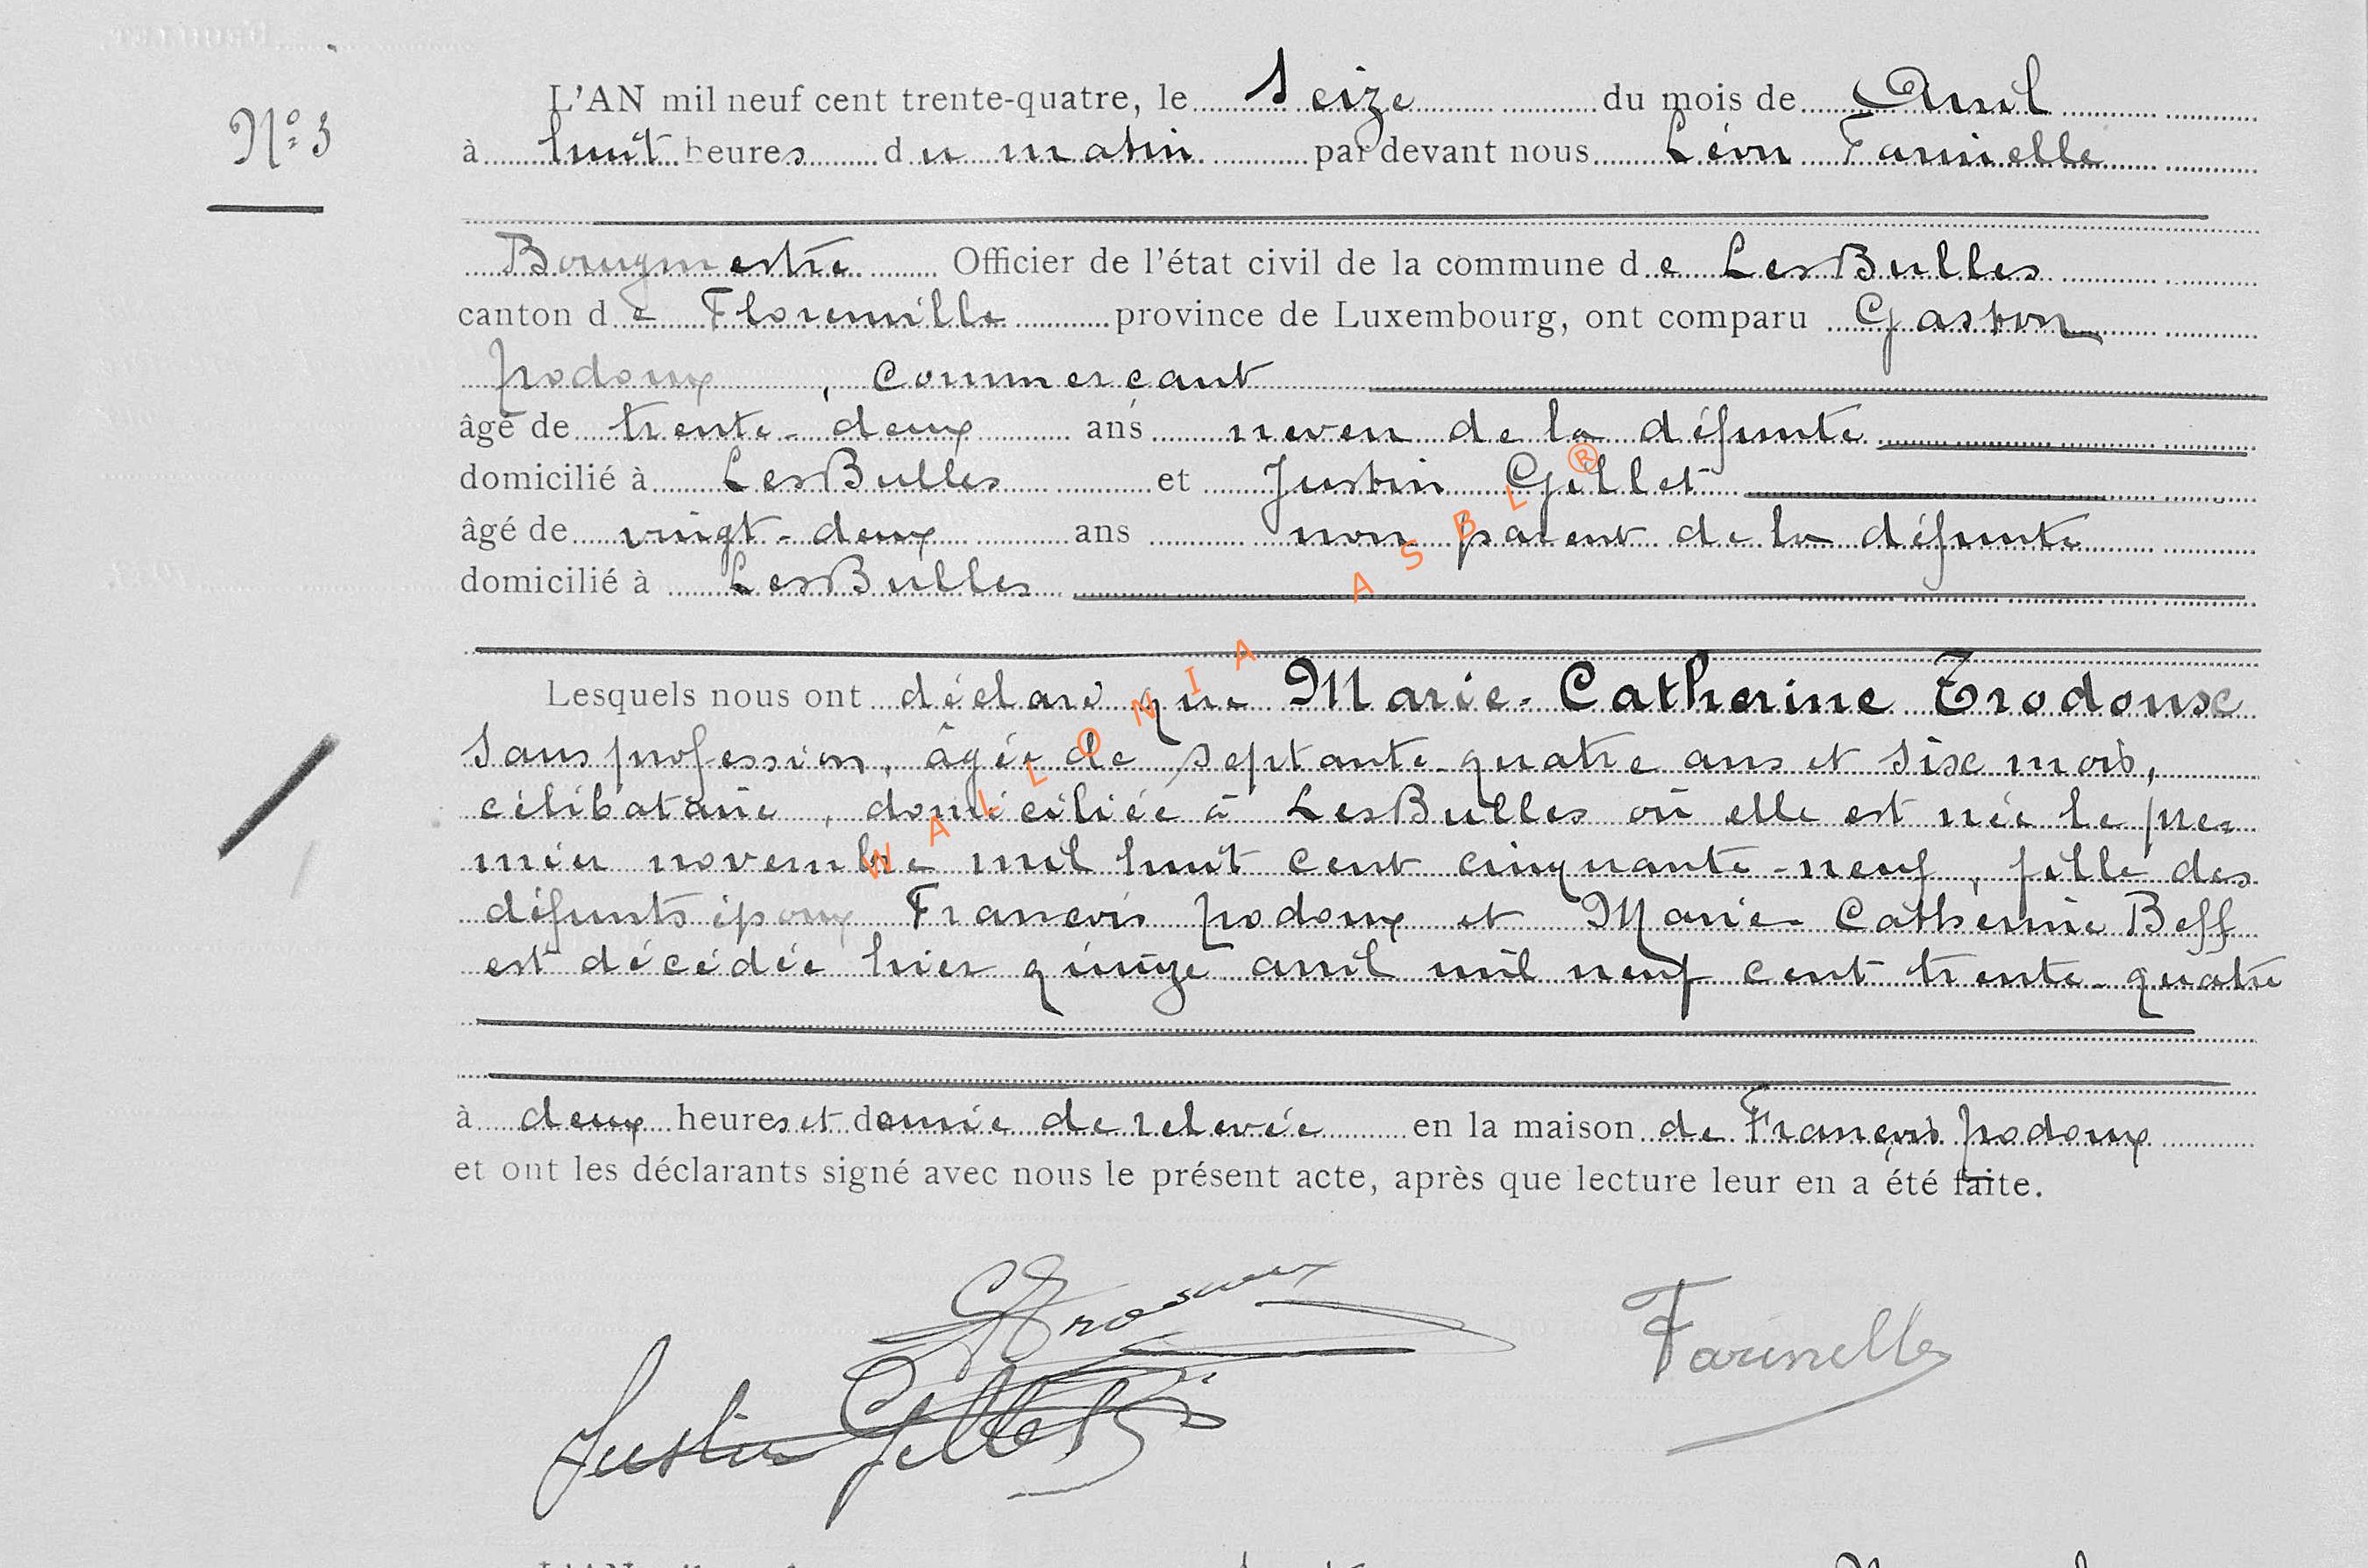 L'AN mil neuf cent trente-quatre, le Seize du mois de Avril
N° 3
à huit heures du matin par devant nous Léon Farinelle
Bourgmestre Officier de l'état civil de la commune de LesBulles
canton de Florenville province de Luxembourg, ont comparu Gaston
Prodoux, commerçant
âgé de trente-deux ans neveu de la défunte
domicilié à LesBulles et Justin Gillet
âgé de vingt-deux ans non parent de la défunte
domicilié à LesBulles
Lesquels nous ont déclaré que Marie-Catherine Prodoux
sans profession, âgée de septante-quatre ans et six mois,
célibataire, domiciliée à LesBulles où elle est née le pre=
mier novembre mil huit cent cinquante-neuf, fille des
défunts époux François Prodoux et Marie-Catherine Beff
est décédée hier quinze avril mil neuf cent trente-quatre
à deux heures et demie de relevée en la maison de François Prodoux
et ont les déclarants signé avec nous le présent acte, après que lecture leur en a été faite.
Farinelle
Justin Gillet
WALLONIA ASBL ®